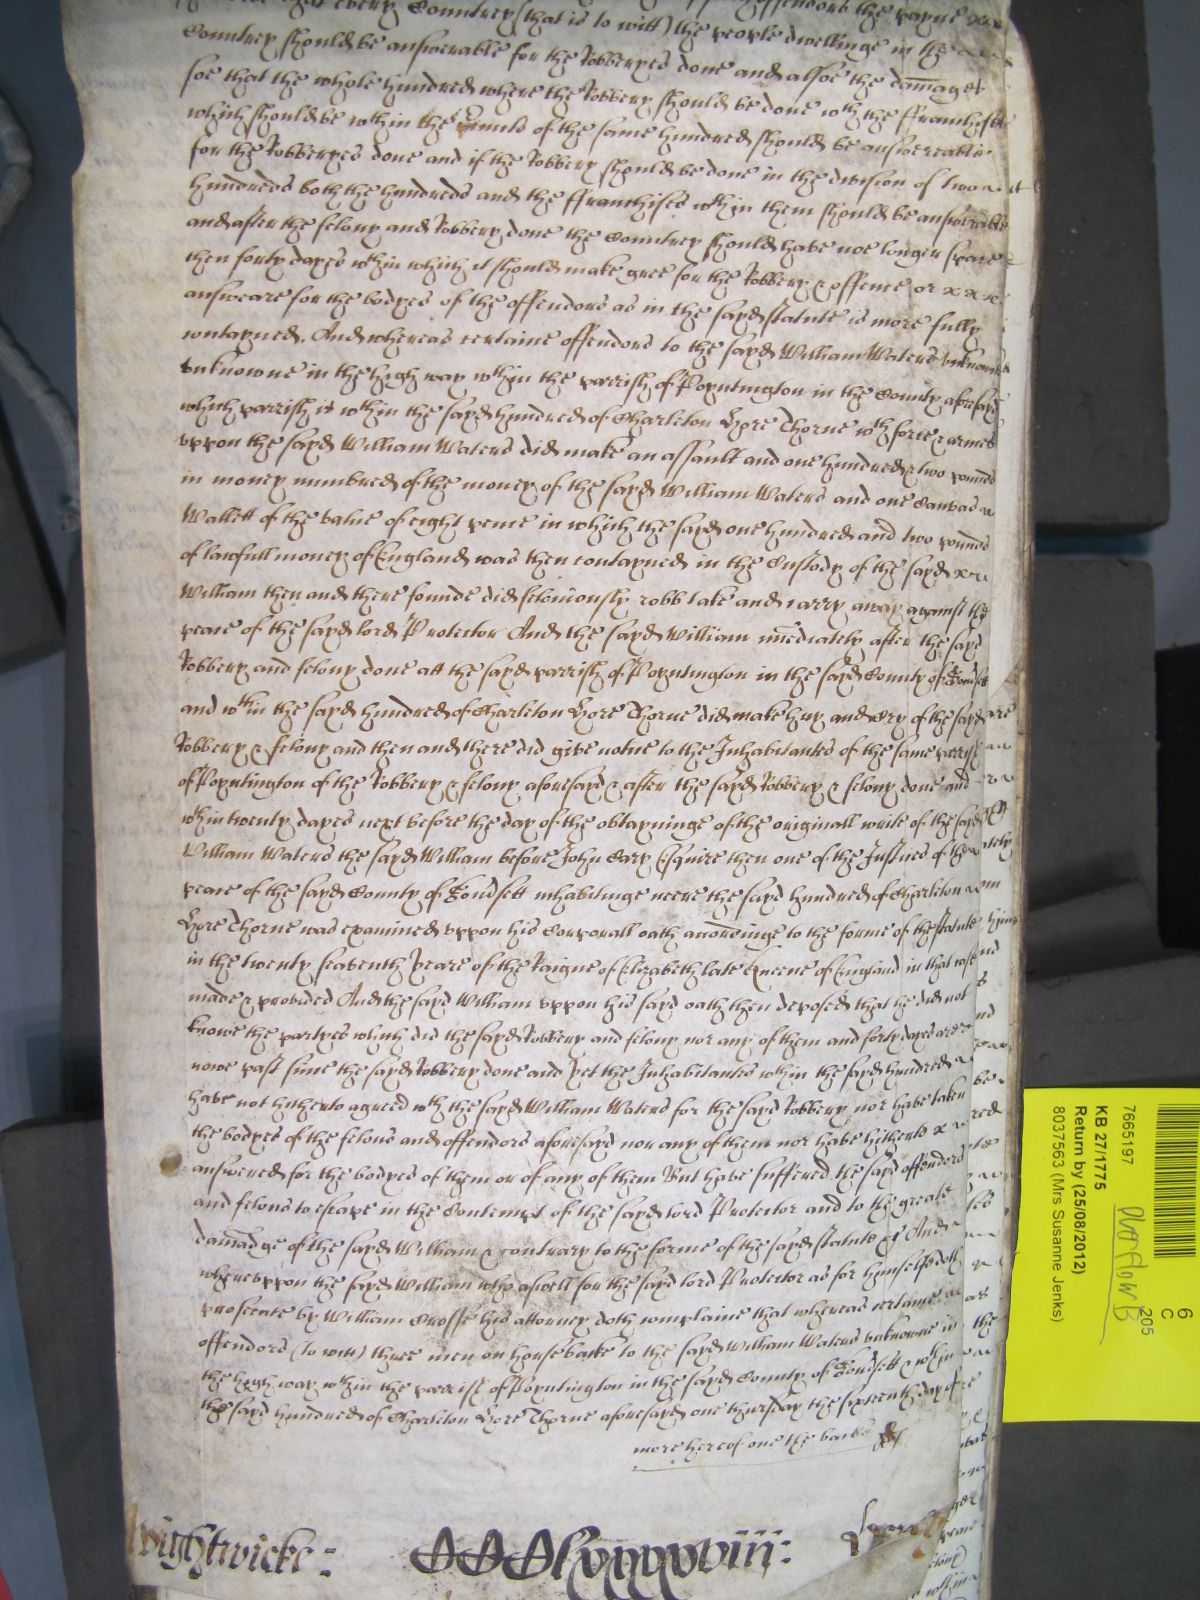 every Countrey (that is to witt) the people dwellinge in the
Countrey should be answerable for the Robberyes done and alsoe the damages
soe that the whole hundred where the Robbery should be done wth the ffranchises
which should be wthin the of the same hundred should be answereable
for the Robberyes done and if the Robbery should be done in the division of two
hundreds both the hundreds and the ffranchises wthin them should be answerable
and after the felony and Robbery done the Countrey should have noe longer space
then forty dayes wthin which it should make gree for the Robbery & offence or x x x
answeare for the bodyes of the offendors as in the sayd statute is more fully
contayned. And whereas certaine offendors to the sayd William Waters unknowne
unknowne in the high way wthin the parrish of Poyntington in the County aforesayd
which parrish is wthin the sayd hundred of Charleton Hore Thorne wth force & armes
uppon the sayd William Waters did make an assault and one hundred & two pounds
in money numbred of the money of the sayd William Waters and one Canvas
Wallett of the value of eight pence in which the sayd one hundred and two pounds
of lawfull money of England was then contayned in the Custody of the sayd
William then and there founde did feloniously robb take and carry away against the
peace of the sayd lord Protector And the sayd William imediately after the sayd
Robbery and felony done att the sayd parrish of Poyntington in the sayd County of Somsett
and wthin the sayd hundred of Charleton Hore Thorne did make huy and Cry of the sayd
Robbery & felony and then and there did give notice to the Inhabitantes of the same parrish
of Poyntington of the Robbery & felony aforesayd & after the sayd Robbery & felony done and
wthin twenty dayes next before the day of the obtayninge of the originall write of the sayd
William Waters the sayd William before John Cary Esquire then one of the Justices of the
peace of the sayd County of Somsett inhabitinge neere the sayd hundred of Charleton
Hore Thorne was examined uppon his Corporall oath accordinge to the forme of the statute
in the twenty seaventh yeare of the Raigne of Elizabeth late Queene of England in that case
made & provided And the sayd William uppon his sayd oath then deposed that he did not
knowe the partyes which did the sayd Robbery and felony nor any of them and forty dayes are
nowe past since the sayd Robbery done and yet the Inhabitantes wthin the sayd hundred
have not hitherto agreed wth the sayd William Waters for the sayd Robbery nor have taken
the bodyes of the felons and offendors aforesayd nor any of them nor have hitherto x
answered for the bodyes of them or of any of them But have suffered the sayd offendors
and felons to escape in the Contempt of the sayd lord Protector and to the greate
damadge of the sayd William & contrary to the forme of the sayd statute & And
whereuppon the sayd William who aswell for the sayd lord Protector as for himselfe doth
prosecute by William Crosse his attorney doth complaine that whereas certaine
offendors (to witt) three men on horse backe to the sayd William Waters unknowne in
the high way wthin the parrish of Poyntington in the sayd County of Somsett & wthin
the sayd hundred of Charleton Hore Thorne aforesayd one thursday the sixteenth day of
more hereof one the backe
Wightwicke:
CCClxxxxviii:
7665197
KB 27/1775
Return by (25/08/2012)
8037563 (Mrs Susanne Jenks)
Overflow B
205
6
C